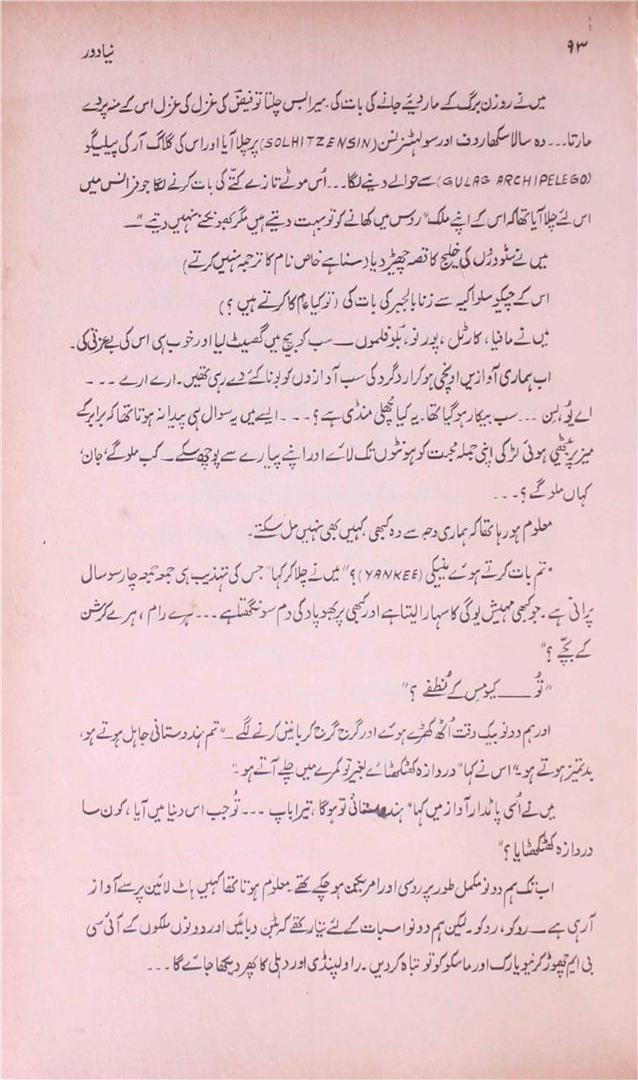 ۹۳
نیا دور
میں نے روزن برگ کے مار دیئے جانے کی بات کی۔ میرا بس چلتا تو فیضؔ کی غزل کی غزل اس کے منہ پر دے
مارتا۔۔۔ وہ سالا سکھاروف اور سولہٹزنسن (SOLHITZENSIN) پر چلا آیا اور اس کی گلاگ آر کی پیلیگو
(GULAG ARCHIPELEGO) سے حوالے دینے لگا۔۔۔ اُس موٹے تازے کتّے کی بات کرنے لگا جو فرانس میں
اس لئے چلا آیا تھا کہ اس کے اپنے ملک "روس میں کھانے کو تو بہت دیتے ہیں مگر بھونکنے نہیں دیتے" ــ
میں نے سئودرُں کی خلیج کا قصہ چھیڑ دیا (سنا ہے خاص نام کا ترجمہ نہیں کرتے)
اس کے چیکو سلواکیہ سے زنا بالجبر کی بات کی (تو کیا عام کا کرتے ہیں ؟)
میں نے مافیا، کارٹل، پورنو، بلو فلموں ــــ سب کو بیچ میں گھسیٹ لیا اور خوب ہی اس کی بے عزتی کی۔
اب ہماری آوازیں اونچی ہو کر ارد گرد کی سب آوازوں کو بونا کئے دے رہی تھیں۔ ارے ارے ۔۔۔۔
اے یُو، لِسن ۔۔۔ سب بیکار ہو گیا تھا۔ یہ کیا مچھلی منڈی ہے؟ ۔۔۔ ایسے میں یہ سوال ہی پیدا نہ ہوتا تھا کہ برابر کے
میز پر بیٹھی ہوئی لڑکی اپنی جملہ محبت کو ہونٹوں تک لائے اور اپنے پیارے سے پوچھ سکے ــ کب ملو گے ’جان‘
کہاں ملو گے ؟ ۔۔۔
معلوم ہو رہا تھا کہ ہماری وجہ سے وہ کبھی، کہیں بھی نہیں مل سکتے۔
"تم بات کرتے ہوئے ینیکی (YANKEE)؟" میں نے چلا کر کہا "جس کی تہذیب ہی جمعہ جمعہ چار سو سال
پرانی ہے۔ جو کبھی مہیش یوگی کا سہارا لیتا ہے اور کبھی پربھوپاد کی دم سونگھتا ہے ۔۔۔ ہرے رام، ہرے کرشن
کے بچّے ؟"
"تُو ــــ کیومِس کے نُطفے ؟"
اور ہم دونو بیک وقت اُٹھ کھڑے ہوئے اور گرج گرج کر باتیں کرنے لگے ــ "تم ہندوستانی جاہل ہوتے ہو،
بدتمیز ہوتے ہو" اس نے کہا "دروازہ کھٹکھٹائے بغیر تو کمرے میں چلے آتے ہو۔"
میں نے اُسی پاٹدار آواز میں کہا "ہندوستانی تو ہو گا، تیرا باپ ۔۔۔ تُو جب اس دنیا میں آیا، کون سا
دروازہ کھٹکھٹایا ؟"
اب تک ہم دونو مکمل طور پر روسی اور امریکن ہو چکے تھے۔ معلوم ہوتا تھا کہیں ہاٹ لائین پر سے آواز
آ رہی ہے ــ روکو، روکو۔ لیکن ہم دونو اس بات کے لئے تیار تھے کہ بٹن دبائیں اور دونوں ملکوں کے آئی سی
بی ایم چھوڑ کر نیو یارک اور ماسکو کو تو تباہ کر دیں۔ راولپنڈی اور دہلی کا پھر دیکھا جائے گا ۔۔۔